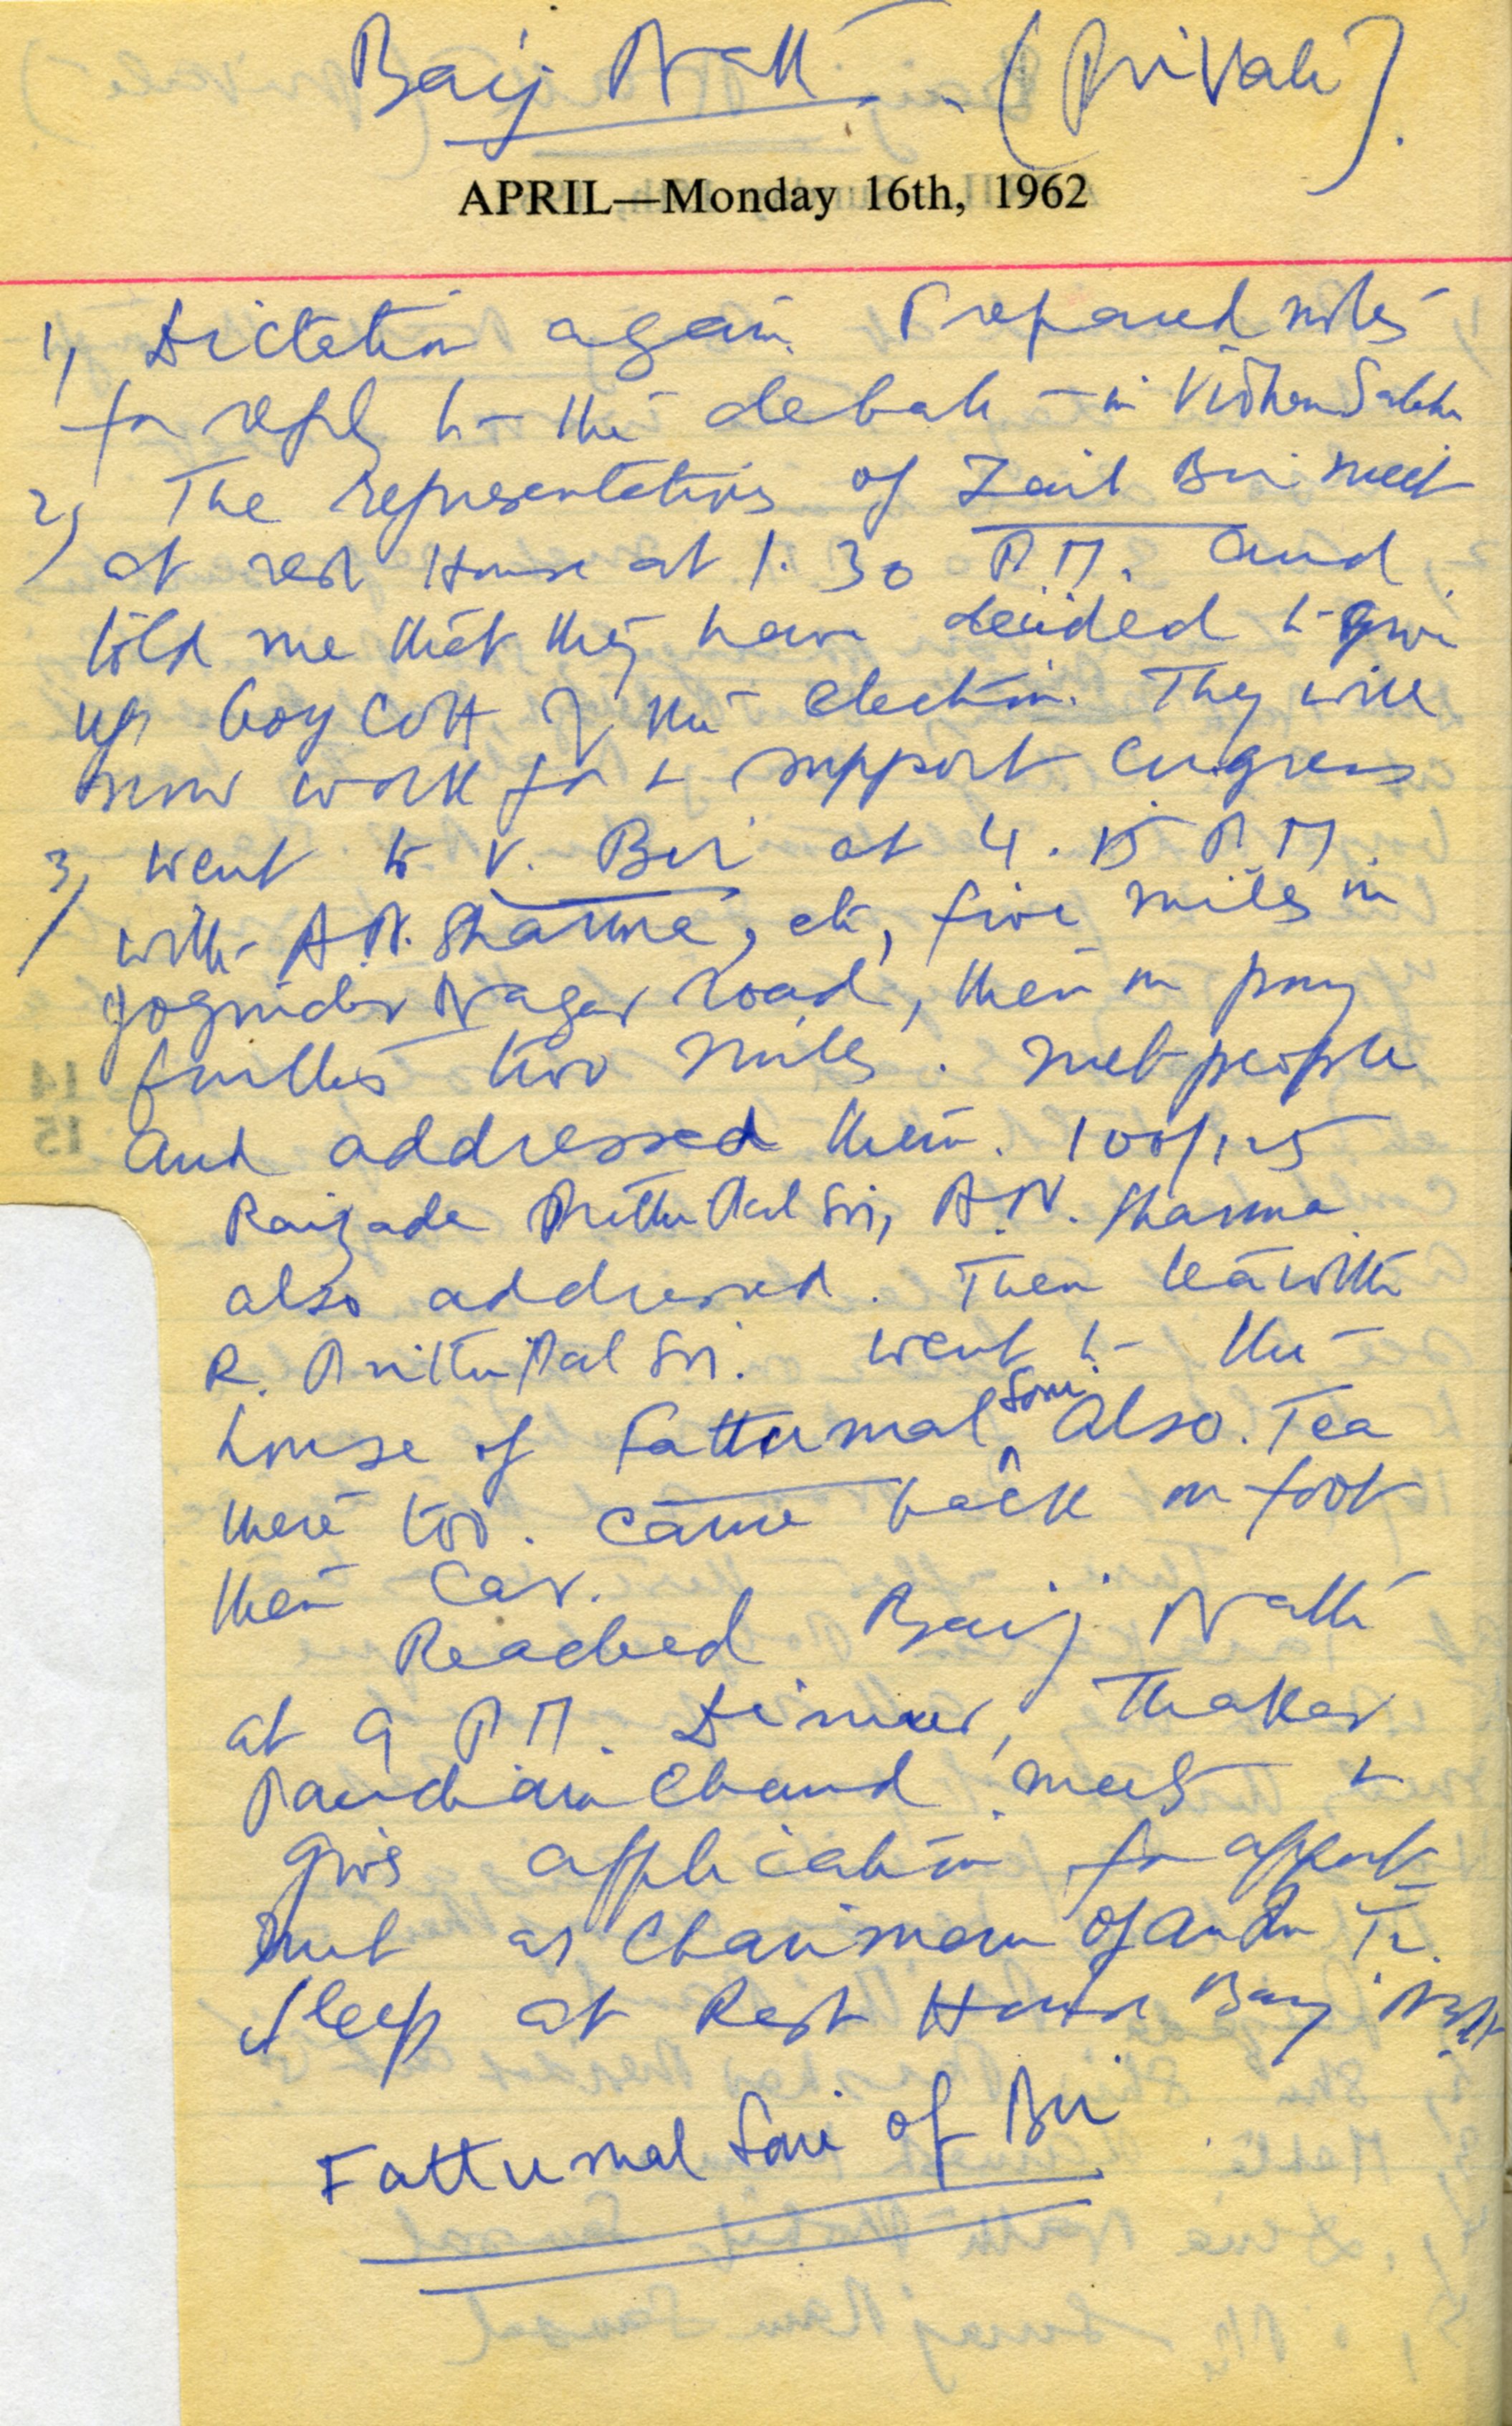 Baij Nath - (Private).
APRIL—Monday 16th, 1962
1) Dictation again. Prepared notes
for reply to the debate - in Vidhan Sabha
2) The representatives of Zail Bir meet
at rest House at 1.30 P.M. and
told me that they have decided to give
up boycott of the election. They will
now work for & support Congress
3) went to V. Bir at 4.15 P.M.
with A.N. Sharma, etc, five miles in
Joginder Nagar road, then on pony
further two miles. met people
and addressed them. 100/125
Raizada Prithi Pal Sn, A.N. Sharma
also addressed. Then tea with
R. Prithi Pal Sn. went to the
house of Fattumal Soni also. Tea
there too. Came back on foot
then car.
Reached Baij Nath
at 9 P.M. Dinner, Thaker
Chand meets &
gives application for appoint
ment as Chairman of Tr.
Sleep at Rest House Baij Nath
Fattumal Soni of Bir